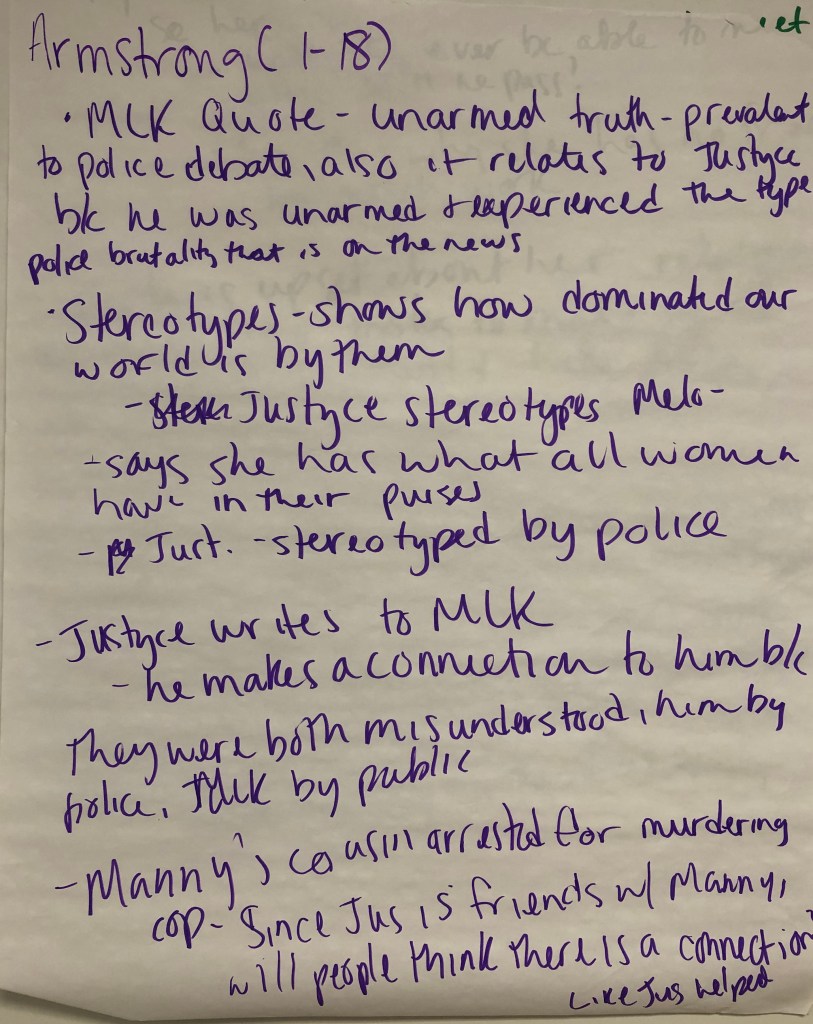 Armstrong (1-18)
• MLK Quote - unarmed truth - prevalent
to police debate, also it relates to Justyce
b/c he was unarmed + experienced the type
police brutality that is on the news
• Stereotypes - shows how dominated our
world is by them
- Justyce stereotypes Melo -
- says she has what all women
have in their purses
- Just. - stereotyped by police
- Justyce writes to MLK
- he makes a connection to him b/c
they were both misunderstood, him by
police, MLK by public
- Manny's cousin arrested for murdering
cop - Since Jus is friends w/ Manny,
will people think there is a connection?
Like Jus helped